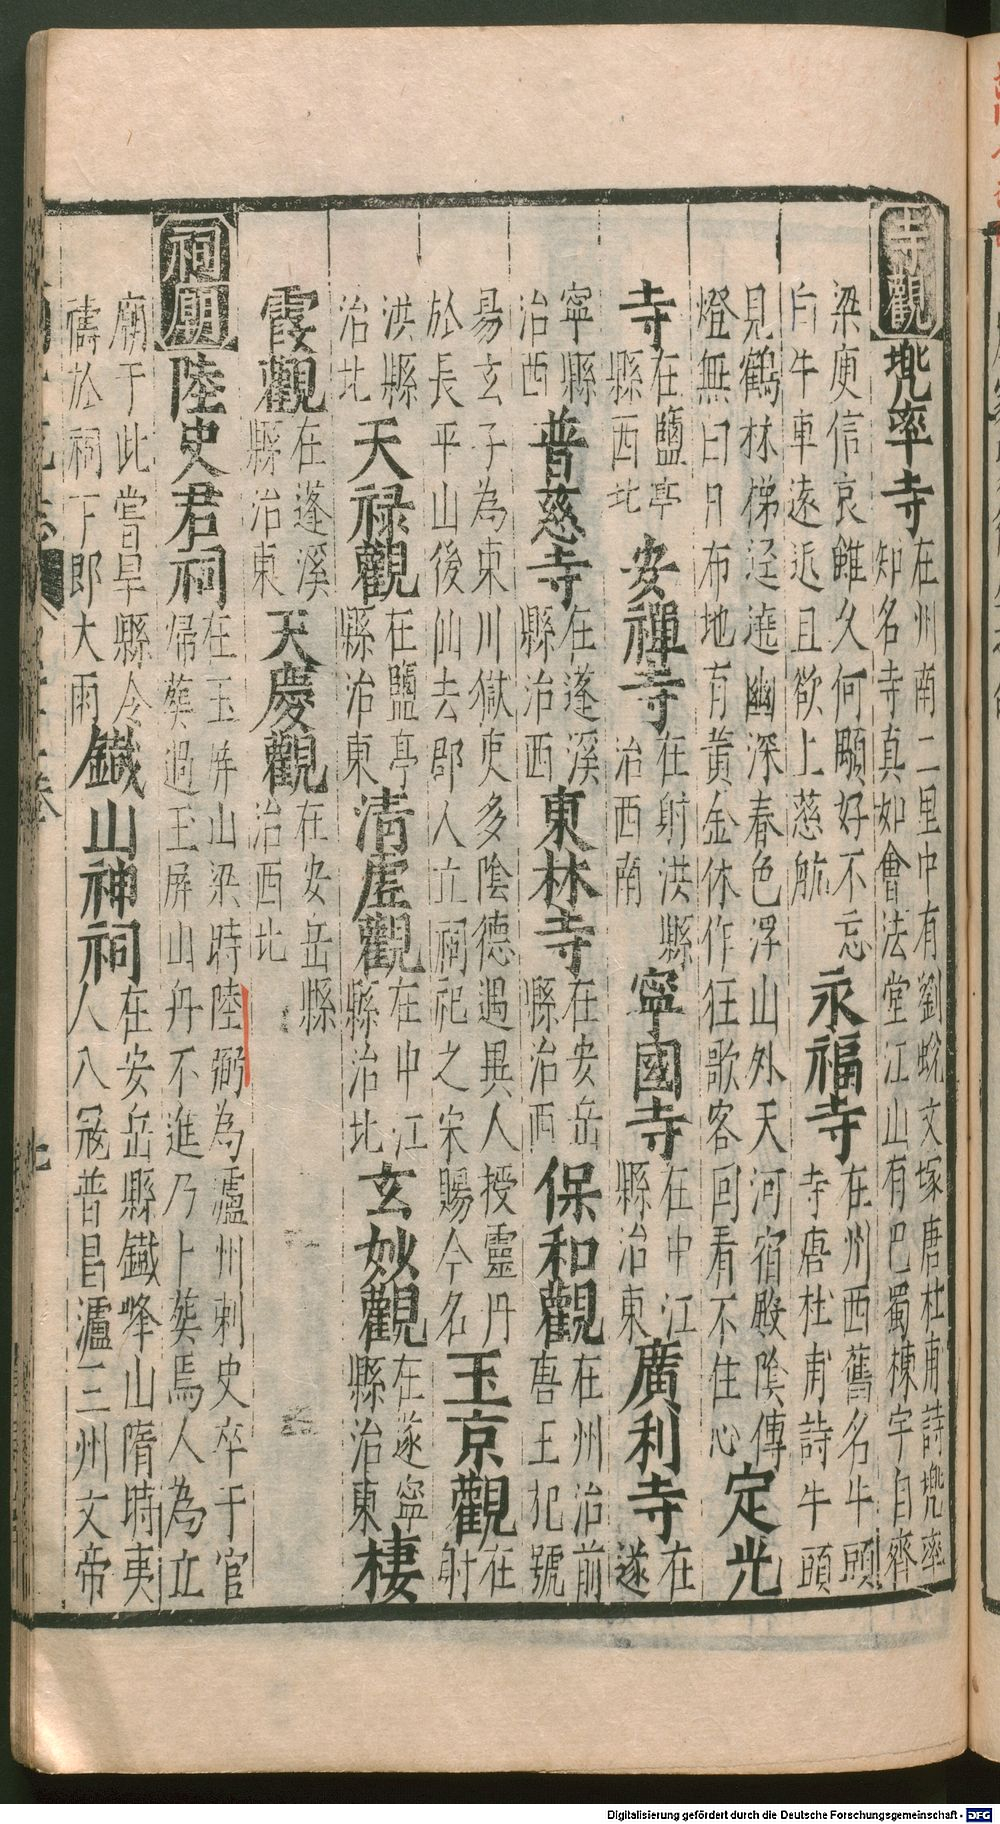 寺觀
兜率寺
在州南二里中有劉蛻文塚唐杜甫詩兜率
知名寺真如會法堂江山有巴蜀棟宇自齊
梁庾信哀雖久何顒好不忘
白牛車遠近且欲上慈航
永福寺
在州西舊名牛頭
寺唐杜甫詩牛頭
見鶴林梯逕遶幽深春色浮山外天河宿殿陰傳
燈無白日布地有黃金休作狂歌客回看不住心
定光
寺
在鹽亭
縣西北
安禪寺
在射洪縣
治西南
寧國寺
在中江
縣治東
廣利寺
在
遂
寧縣
治西
普慈寺
在蓬溪
縣治西
東林寺
在安岳
縣治西
保和觀
在州治前
唐王犯號
易玄子為東川獄吏多陰德遇異人授靈丹
於長平山後仙去郡人立祠祀之宋賜今名
玉京觀
在
射
洪縣
治北
天祿觀
在鹽亭
縣治東
清虛觀
在中江
縣治北
玄妙觀
在遂寧
縣治東
棲
霞觀
在蓬溪
縣治東
天慶觀
在安岳縣
治西北
祠廟
陸史君祠
在玉屏山梁時陸弼為瀘州刺史卒于官
歸葬過玉屏山舟不進乃卜葬焉人為立
廟于此嘗旱縣令
禱於祠下即大雨
鐵山神祠
在安岳縣鐵峰山隋時夷
人入寇普昌瀘三州文帝
Digitalisierung gefördert durch die Deutsche Forschungsgemeinschaft - DFG